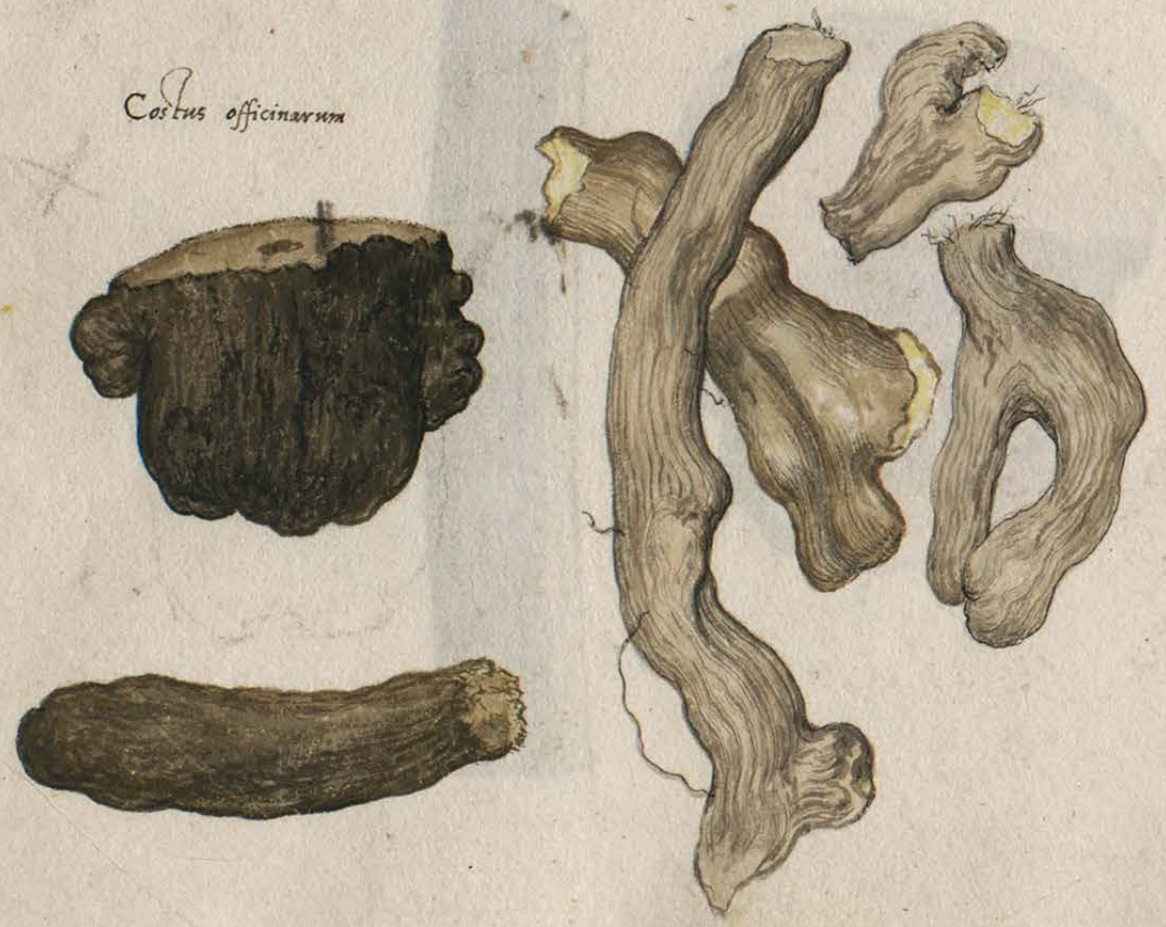 Costus officinarum